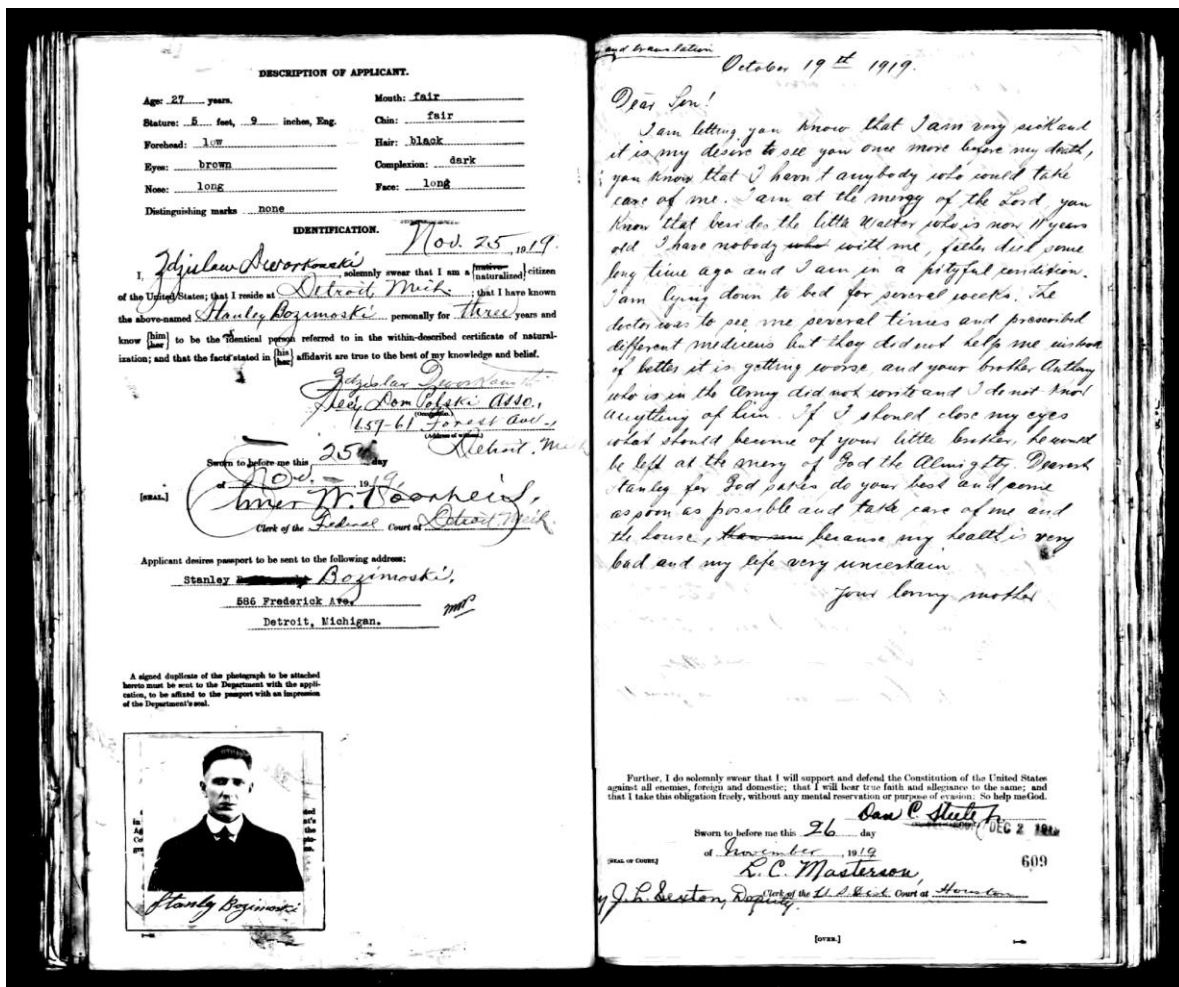 DESCRIPTION OF APPLICANT.
Age: 27 years.
Mouth: fair
Stature: 5 feet, 9 inches, Eng.
Chin: fair
Forehead: low
Hair: black
Eyes: brown
Complexion: dark
Nose: long
Face: long
Distinguishing marks none
IDENTIFICATION.
Nov. 25, 1919.
I, Zdzislaw Dworkowski, solemnly swear that I am a [native naturalized] citizen
of the United States; that I reside at Detroit, Mich.; that I have known
the above-named Stanley Bozimoski personally for three years and
know [him her] to be the identical person referred to in the within-described certificate of natural-
ization; and that the facts stated in [his her] affidavit are true to the best of my knowledge and belief.
Zdzislaw Dworkowski
Secy Dom Polski Asso.
(Occupation.)
157-61 Forest Ave.,
(Address of witness.)
Detroit, Mich
Sworn to before me this 25th day
of Nov. 1919.
[SEAL.]
Elmer W. Voorheis,
Clerk of the Federal Court at Detroit Mich.
Applicant desires passport to be sent to the following address:
Stanley Bozimoski,
586 Frederick Ave.
Detroit, Michigan.
A signed duplicate of the photograph to be attached
hereto must be sent to the Department with the appli-
cation, to be affixed to the passport with an impression
of the Department's seal.
Stanly Bozimoski
and translation
October 19th 1919.
Dear Son!
I am letting you know that I am very sick and
it is my desire to see you once more before my death,
you know that I havn't anybody who would take
care of me. I am at the mergy of the Lord, you
know that besides the little Walter who is now 11 years
old I have nobody who with me, father died some
long time ago and I am in a pityful condition.
I am lying down to bed for several weeks. The
doctor was to see me several times and prescribed
different mediciens but they did not help me instead
of better it is getting worse, and your brother Anthony
who is in the Army did not write and I do not know
anything of him. If I should close my eyes
what should become of your little brother, he would
be left at the mercy of God the Almighty. Dearest
Stanley for God sakes do your best and come
as soon as possible and take care of me and
the house, because my health is very
bad and my life very uncertain
Your loving mother
Further, I do solemnly swear that I will support and defend the Constitution of the United States
against all enemies, foreign and domestic; that I will bear true faith and allegiance to the same; and
that I take this obligation freely, without any mental reservation or purpose of evasion: So help me God.
Dan C. Steele Jr.
DEC 2 1919
Sworn to before me this 26 day
of November, 1919
[SEAL OF COURT.]
609
L. C. Masterson,
Clerk of the U S Dist. Court at Houston
y J. L. Sexton, Deputy.
[OVER.]